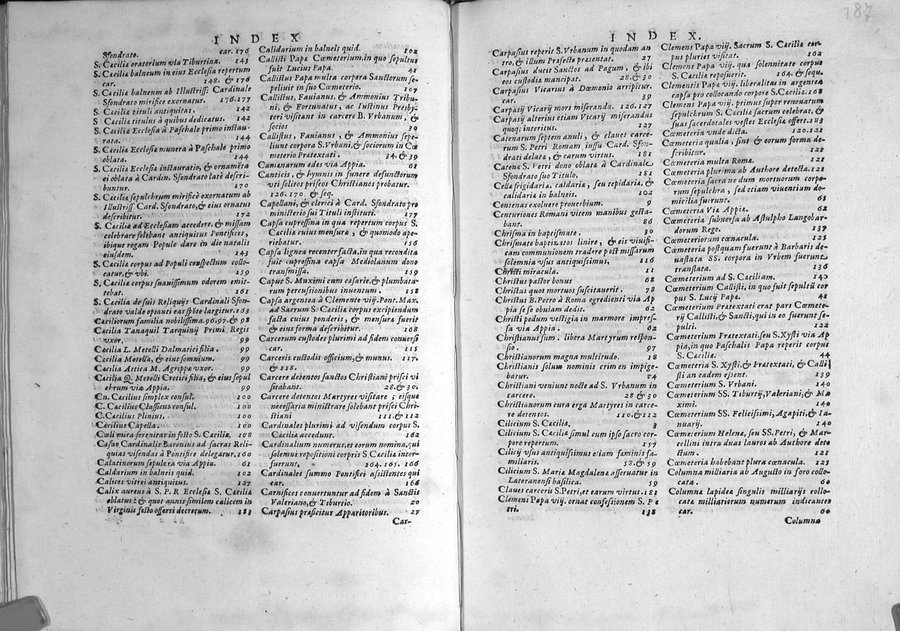 187
INDEX
Sfondrato. car. 176
S. Cæcilia oratorium via Tiburtina. 143
S. Cæciliæ balneum in eius Ecclesia repertum
car. 148. & 176
S. Cæciliæ balneum ab Illustriss. Cardinale
Sfondrato mirificè exornatur. 176.177
S. Cæciliæ tituli antiquitas. 142
S. Cæciliæ titulus à quibus dedicatus. 142
S. Cæciliæ Ecclesia à Paschale primo instau-
rata. 144
S. Cæciliæ Ecclesiæ munera à Paschale primo
oblata. 144
S. Cæciliæ Ecclesiæ instauratio, & ornamēta
ei oblata à Cardin. Sfondrato latè descri-
buntur. 170
S. Cæciliæ sepulchrum mirificè exornatum ab
Illustriss. Card. Sfondrato, & eius ornatus
describitur. 172
S. Cæciliæ ad Ecclesiam accedere, & missam
celebrare solebant antiquitus Pontifices,
ibique rogam Populo dare in die natalis
eiusdem. 143
S. Cæciliæ corpus ad Populi conspectum collo-
catur, & vbi. 159
S. Cæciliæ corpus suauissimum odorem emit-
tebat. 161
S. Cæciliæ de suis Reliquijs Cardinali Sfon-
drato valde optanti eas spōte largitur. 163
Cæciliorum familia nobilissima. 96.97. & 98
Cæcilia Tanaquil Tarquinij Primi Regis
vxor. 99
Cæcilia L. Metelli Dalmatici filia. 99
Cæcilia Metella, & eius somnium. 99
Cæcilia Attica M. Agrippæ vxor. 99
Cæcilia Q. Metelli Cretici filia, & eius sepul
chrum via Appia. 99
Cn. Cæcilius simplex consul. 100
C. Cæcilius Classicus consul. 100
C. Cæcilius Plinius. 100
Cæcilius Capella. 100
Cæli mira serenitas in festo S. Cæciliæ. 168
Cæsar Cardinalis Baronius ad sacras Reli-
quias visendas à Pontifice delegatur. 160
Calatinorum sepulcra via Appia. 61
Caldarium in balneis quid. 102
Calices vitrei antiquitus. 127
Calix aureus à S. P. R Ecclesiæ S. Cæciliæ
oblatus: & quot annis similem calicem in
Virginis festo offerri decretum. 183
Calidarium in balneis quid. 102
Callisti Papæ Cœmeterium, in quo sepultus
fuit Lucius Papa. 41
Callistus Papa multa corpora Sanctorum se-
peliuit in suo Cœmeterio. 107
Callistus, Fauianus, & Ammonius Tribu-
ni, & Fortunatus, ac Iustinus Presby-
teri visitant in carcere B. Vrbanum, &
socios 39
Callistus, Fauianus, & Ammonius sepe-
liunt corpora S. Vrbani, & sociorum in Cœ
meterio Pretextati. 34. & 39
Camœnarum ædes via Appia. 61
Canticis, & hymnis in funere defunctorum
vti solitos priscos Christianos probatur.
126.170. & seq.
Capellani, & clerici à Card. Sfondrato pro
ministerio sui Tituli instituti. 177
Capsa cupressina in qua repertum corpus S.
Cæciliæ cuius mensuræ, & quomodo ape-
riebatur. 156
Capsa lignea recenter facta, in qua recondita
fuit cupressina capsa Mediolanum dono
transmissa. 159
Caput S. Maximi cum cæsarie, & plumbata-
rum percussionibus inuentum. 158
Capsa argentea à Clemente viij. Pont. Max.
ad Sacrum S. Cæciliæ corpus excipiendum
facta cuius ponderis, & mensuræ fuerit
& eius forma describitur. 168
Carcerum custodes plurimi ad fidem conuersi
car. 115
Carceris custodis officium, & munus. 117.
& 118.
Carcere detentos sanctos Christiani prisci vi
sitabant. 28. & 30.
Carcere detentos Martyres visitare; eisque
necessaria ministrare solebant prisci Chri-
stiani 111. & 112
Cardinales plurimi ad visendum corpus S.
Cæciliæ accedunt. 162
Cardinalium numerus, et eorum nomina, qui
solemni repositioni corporis S Cæciliæ inter
fuerunt. 164. 165. 166
Cardinales summo Pontifici assistentes qui
car. 166
Carnifices conuertuntur ad fidem à Sanctis
Valeriano, & Tiburtio. 20
Carpasius præficitur Apparitoribus. 27
Car-
INDEX.
Carpasius reperit S. Vrbanum in quodam an
tro, & illum Præfecto præsentat. 27
Carpasius ducit Sanctos ad Pagum, & ibi
eos custodia mancipat. 28. & 30
Carpasius Vicarius à Dæmonio arripitur.
car. 39
Carpasij Vicarij mors miseranda. 126.127
Carpasij alterius etiam Vicarij miserandus
quoq; interitus. 127
Catenarum septem anuli, & claues carce-
rum S. Petri Romani iussu Card. Sfon-
drati delatæ, & earum virtus. 181
Catenæ S. Petri dono oblatæ à Cardinale
Sfondrato suo Titulo. 181
Cella frigidaria, caldaria, seu tepidaria, &
calidaria in balneis. 102
Centenas exoluere prouerbium. 9
Centuriones Romani vitem manibus gesta-
bant. 86
Chrisma in baptismate. 30
Chrismate baptizatos linire, & eis viuifi-
cam communionem tradere post missarum
solemnia vsus antiquissimus. 116
Christi miracula. 11
Christus pastor bonus 68
Christus quot mortuos suscitauerit. 78
Christus B. Petro à Roma egredienti via Ap
pia se se obuiam dedit. 62
Christi pedum vestigia in marmore impres-
sa via Appia. 62
Christianus sum. libera Martyrum respon-
sio. 97
Christianorum magna multitudo. 18
Christianis solum nominis crim en impinge-
batur. 24
Christiani veniunt nocte ad S. Vrbanum in
carcere. 28 & 30
Christianorum cura erga Martyres in carce-
re detentos. 110. & 112
Cilicium S. Cæciliæ. 3
Cilicium S. Cæciliæ simul cum ipso sacro cor-
pore repertum. 157
Cilicij vsus antiquissimus etiam feminis fa-
miliaris. 58. & 59
Cilicium S. Mariæ Magdalenæ asseruatur in
Lateranensi basilica. 59
Claues carceris S. Petri, et earum virtus. 181
Clemens Papa viij. ornat confessionem S. Pe
tri. 138
Clemens Papa viij. Sacrum S. Cæciliæ cor-
pus pluries visitat. 162
Clemens Papa viij. qua solennitate corpus
S. Cæciliæ reposuerit. 164. & sequ.
Clementis Papæ viij. liberalitas in argentea
capsa pro collocando corpore S. Cæciliæ. 168
Clemens Papa viij. primus super renouatum
sepulchrum S. Cæciliæ Sacrum celebrat, &
suas sacerdotales vestes Ecclesiæ offert. 183
Cœmeteria vnde dicta. 120.121
Cœmeteria qualia, sint & eorum forma de-
scribitur. 122
Cœmeteria multa Romæ. 121
Cœmeteria plurima ab Authore detecta. 122
Cœmeteria sacra ne dum mortuorum corpo-
rum sepulcra, sed etiam viuentium do-
micilia fuerunt. 65
Cœmeteria Via Appia. 62
Cœmeteria subuersa ab Astulpho Langobar-
dorum Rege. 137
Cœmeteriorum cœnacula. 125
Cœmeteria postquam fuerunt à Barbaris de-
uastata SS. corpora in Vrbem fuerunt
translata. 136
Cœmeterium ad S. Cæciliam. 140
Cœmeterium Callisti, in quo fuit sepulti cor
pus S. Lucij Papæ. 41
Cœmeterium Pretextati erat pars Cœmete-
rij Callisti, & Sancti, qui in eo fuerunt se-
pulti. 122
Cœmeterium Pretextati, seu S. Xysti via Ap
pia, in quo Paschalis Papa reperit corpus
S. Cæciliæ. 44
Cœmeteria S. Xysti, & Pretextati, & Calli
sti an eadem essent. 139
Cœmeterium S. Vrbani. 140
Cœmeterium SS. Tiburtij, Valeriani, & Ma
ximi. 140
Cœmeterium SS. Felicissimi, Agapiti, & Ia
nuarij. 140
Cœmeterium Helenæ, seu SS. Petri, & Mar-
cellini intra duas lauros ab Authore dete
ctum. 121
Cœmeteria habebant plura cœnacula. 125
Columna milliaria ab Augusto in foro collo-
cata. 60
Columnæ lapideæ singulis milliarijs collo-
catæ milliariorum numerum indicantes
car. 60
Columna